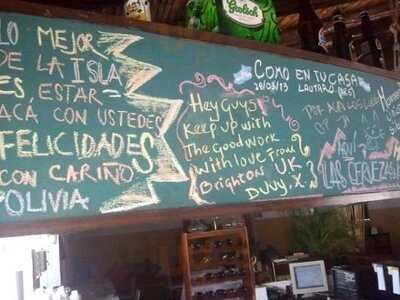 Grolsch
LO MEJOR
DE LA ISLA
ES ESTAR
ACÁ CON USTEDES
FELICIDADES
CON CARIÑO
BOLIVIA
Hey Guys
Keep up with
The Good work
with love from
Brighton UK
COMO EN TU CASA
28/08/13 LAUTARO
LAS CERVEZAS